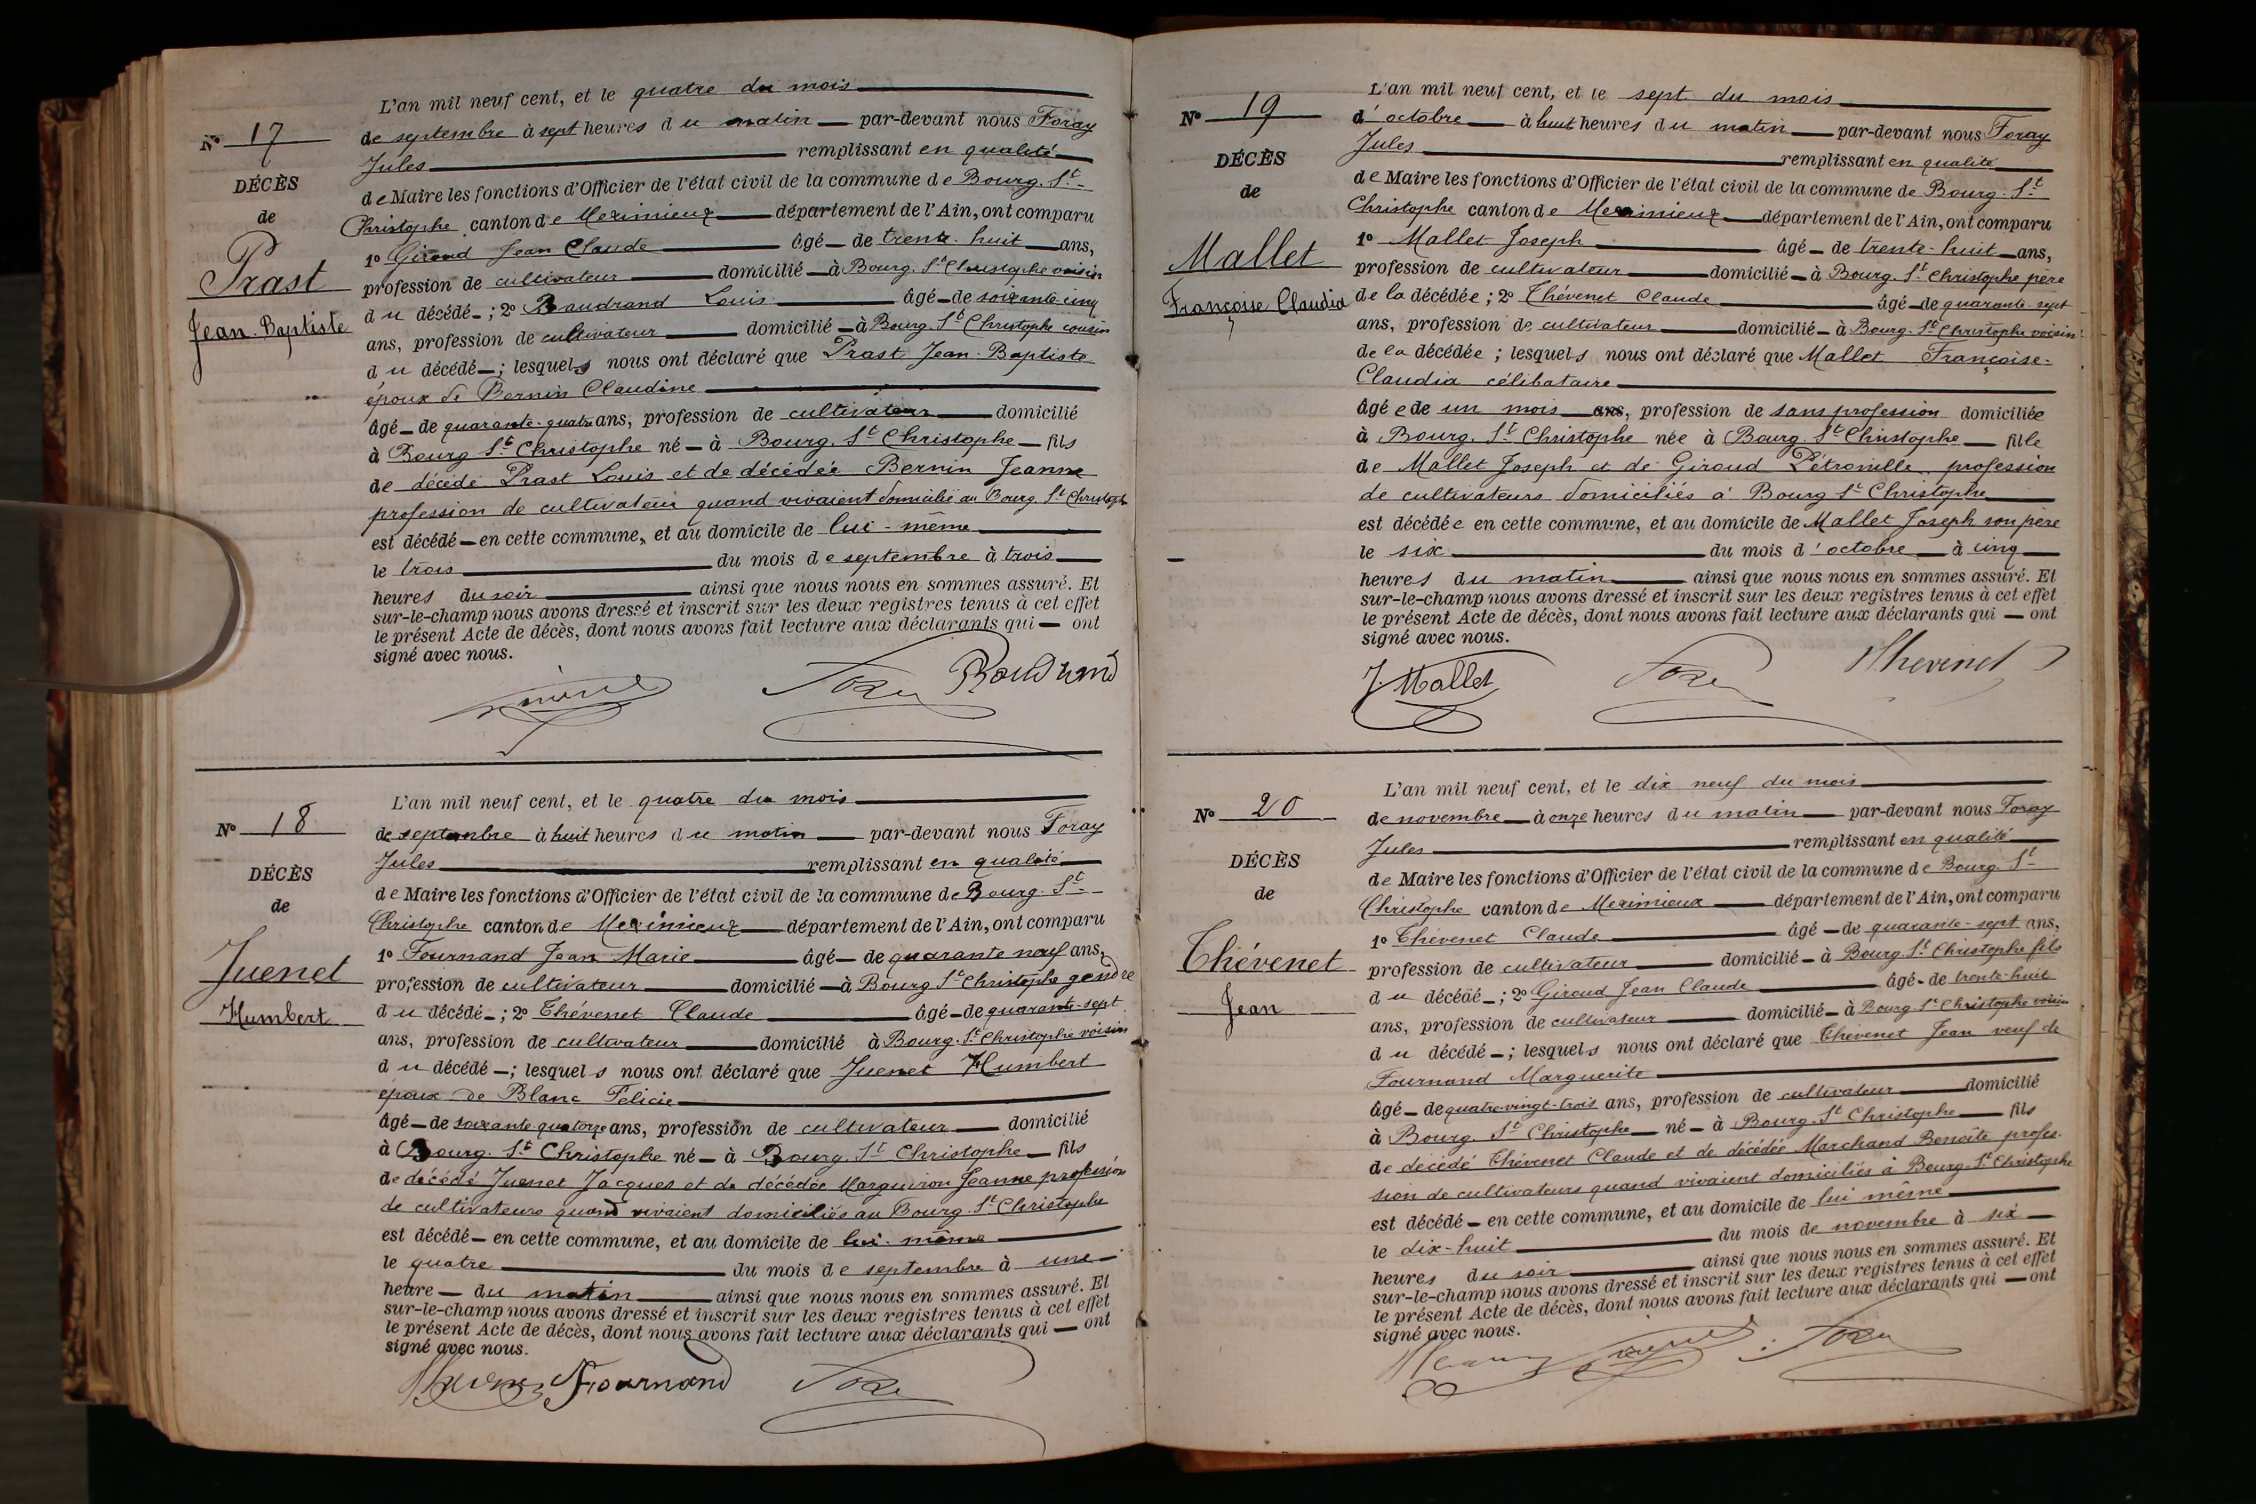 L'an mil neuf cent, et le quatre du mois
N° 17
de septembre à sept heures du matin — par-devant nous Foray
Jules remplissant en qualité
DÉCÈS
de Maire les fonctions d'Officier de l'état civil de la commune de Bourg. St-
de
Christophe canton de Meximieux département de l'Ain, ont comparu
Prast
1° Giroud Jean Claude âgé — de trente-huit ans,
Jean-Baptiste
profession de cultivateur domicilié — à Bourg. St Christophe voisin
du décédé — ; 2° Baudrand Louis âgé — de soixante-cinq
ans, profession de cultivateur domicilié — à Bourg. St Christophe cousin
du décédé — ; lesquels nous ont déclaré que Prast Jean-Baptiste
époux de Bernin Claudine
âgé — de quarante-quatre ans, profession de cultivateur domicilié
à Bourg St Christophe né — à Bourg. St Christophe — fils
de décédé Prast Louis et de décédée Bernin Jeanne
profession de cultivateur quand vivaient domicilié au Bourg. St Christophe
est décédé — en cette commune, et au domicile de lui-même
le trois du mois de septembre à trois
heures du soir ainsi que nous nous en sommes assuré. Et
sur-le-champ nous avons dressé et inscrit sur les deux registres tenus à cet effet
le présent Acte de décès, dont nous avons fait lecture aux déclarants qui — ont
signé avec nous.
Foray Baudrand
L'an mil neuf cent, et le quatre du mois
N° 18
de septembre à huit heures du matin — par-devant nous Foray
Jules remplissant en qualité
DÉCÈS
de Maire les fonctions d'Officier de l'état civil de la commune de Bourg. St-
de
Christophe canton de Meximieux département de l'Ain, ont comparu
Juenet
1° Fournand Jean Marie âgé — de quarante neuf ans,
Humbert
profession de cultivateur domicilié — à Bourg St Christophe gendre
du décédé — ; 2° Thévenet Claude âgé — de quarante-sept
ans, profession de cultivateur domicilié à Bourg. St Christophe voisin
du décédé — ; lesquels nous ont déclaré que Juenet Humbert
époux de Blanc Félicie
âgé — de soixante quatorze ans, profession de cultivateur domicilié
à Bourg. St Christophe né — à Bourg. St Christophe — fils
de décédé Juenet Jacques et de décédée Marguiron Jeanne profession
de cultivateurs quand vivaient domiciliés au Bourg. St Christophe
est décédé — en cette commune, et au domicile de lui-même
le quatre du mois de septembre à une
heure — du matin ainsi que nous nous en sommes assuré. Et
sur-le-champ nous avons dressé et inscrit sur les deux registres tenus à cet effet
le présent Acte de décès, dont nous avons fait lecture aux déclarants qui — ont
signé avec nous.
Fournand Foray
L'an mil neuf cent, et le sept du mois
N° 19
d'octobre — à huit heures du matin — par-devant nous Foray
Jules remplissant en qualité
DÉCÈS
de Maire les fonctions d'Officier de l'état civil de la commune de Bourg. St-
de
Christophe canton de Meximieux département de l'Ain, ont comparu
Mallet
1° Mallet Joseph âgé — de trente-huit ans,
Françoise Claudia
profession de cultivateur domicilié — à Bourg. St Christophe père
de la décédée ; 2° Thévenet Claude âgé — de quarante-sept
ans, profession de cultivateur domicilié — à Bourg. St Christophe voisin
de la décédée ; lesquels nous ont déclaré que Mallet Françoise-
Claudia célibataire
âgée de un mois ans, profession de sans profession domiciliée
à Bourg. St Christophe née à Bourg. St Christophe — fille
de Mallet Joseph et de Giroud Pétronille profession
de cultivateurs domiciliés à Bourg St Christophe
est décédée en cette commune, et au domicile de Mallet Joseph son père
le six du mois d'octobre — à cinq
heures du matin ainsi que nous nous en sommes assuré. Et
sur-le-champ nous avons dressé et inscrit sur les deux registres tenus à cet effet
le présent Acte de décès, dont nous avons fait lecture aux déclarants qui — ont
signé avec nous.
J. Mallet Foray Thevenet
L'an mil neuf cent, et le dix neuf du mois
N° 20
de novembre — à onze heures du matin — par-devant nous Foray
Jules remplissant en qualité
DÉCÈS
de Maire les fonctions d'Officier de l'état civil de la commune de Bourg. St-
de
Christophe canton de Meximieux département de l'Ain, ont comparu
Thévenet
1° Thévenet Claude âgé — de quarante-sept ans,
Jean
profession de cultivateur domicilié — à Bourg. St Christophe fils
du décédé — ; 2° Giroud Jean Claude âgé — de trente-huit
ans, profession de cultivateur domicilié — à Bourg. St Christophe voisin
du décédé — ; lesquels nous ont déclaré que Thévenet Jean veuf de
Fournand Marguerite
âgé — de quatre-vingt-trois ans, profession de cultivateur domicilié
à Bourg. St Christophe — né — à Bourg. St Christophe fils
de décédé Thévenet Claude et de décédée Marchand Benoîte profes-
sion de cultivateurs quand vivaient domiciliés à Bourg-St Christophe
est décédé — en cette commune, et au domicile de lui même
le dix-huit du mois de novembre à six
heures du soir ainsi que nous nous en sommes assuré. Et
sur-le-champ nous avons dressé et inscrit sur les deux registres tenus à cet effet
le présent Acte de décès, dont nous avons fait lecture aux déclarants qui — ont
signé avec nous.
Foray